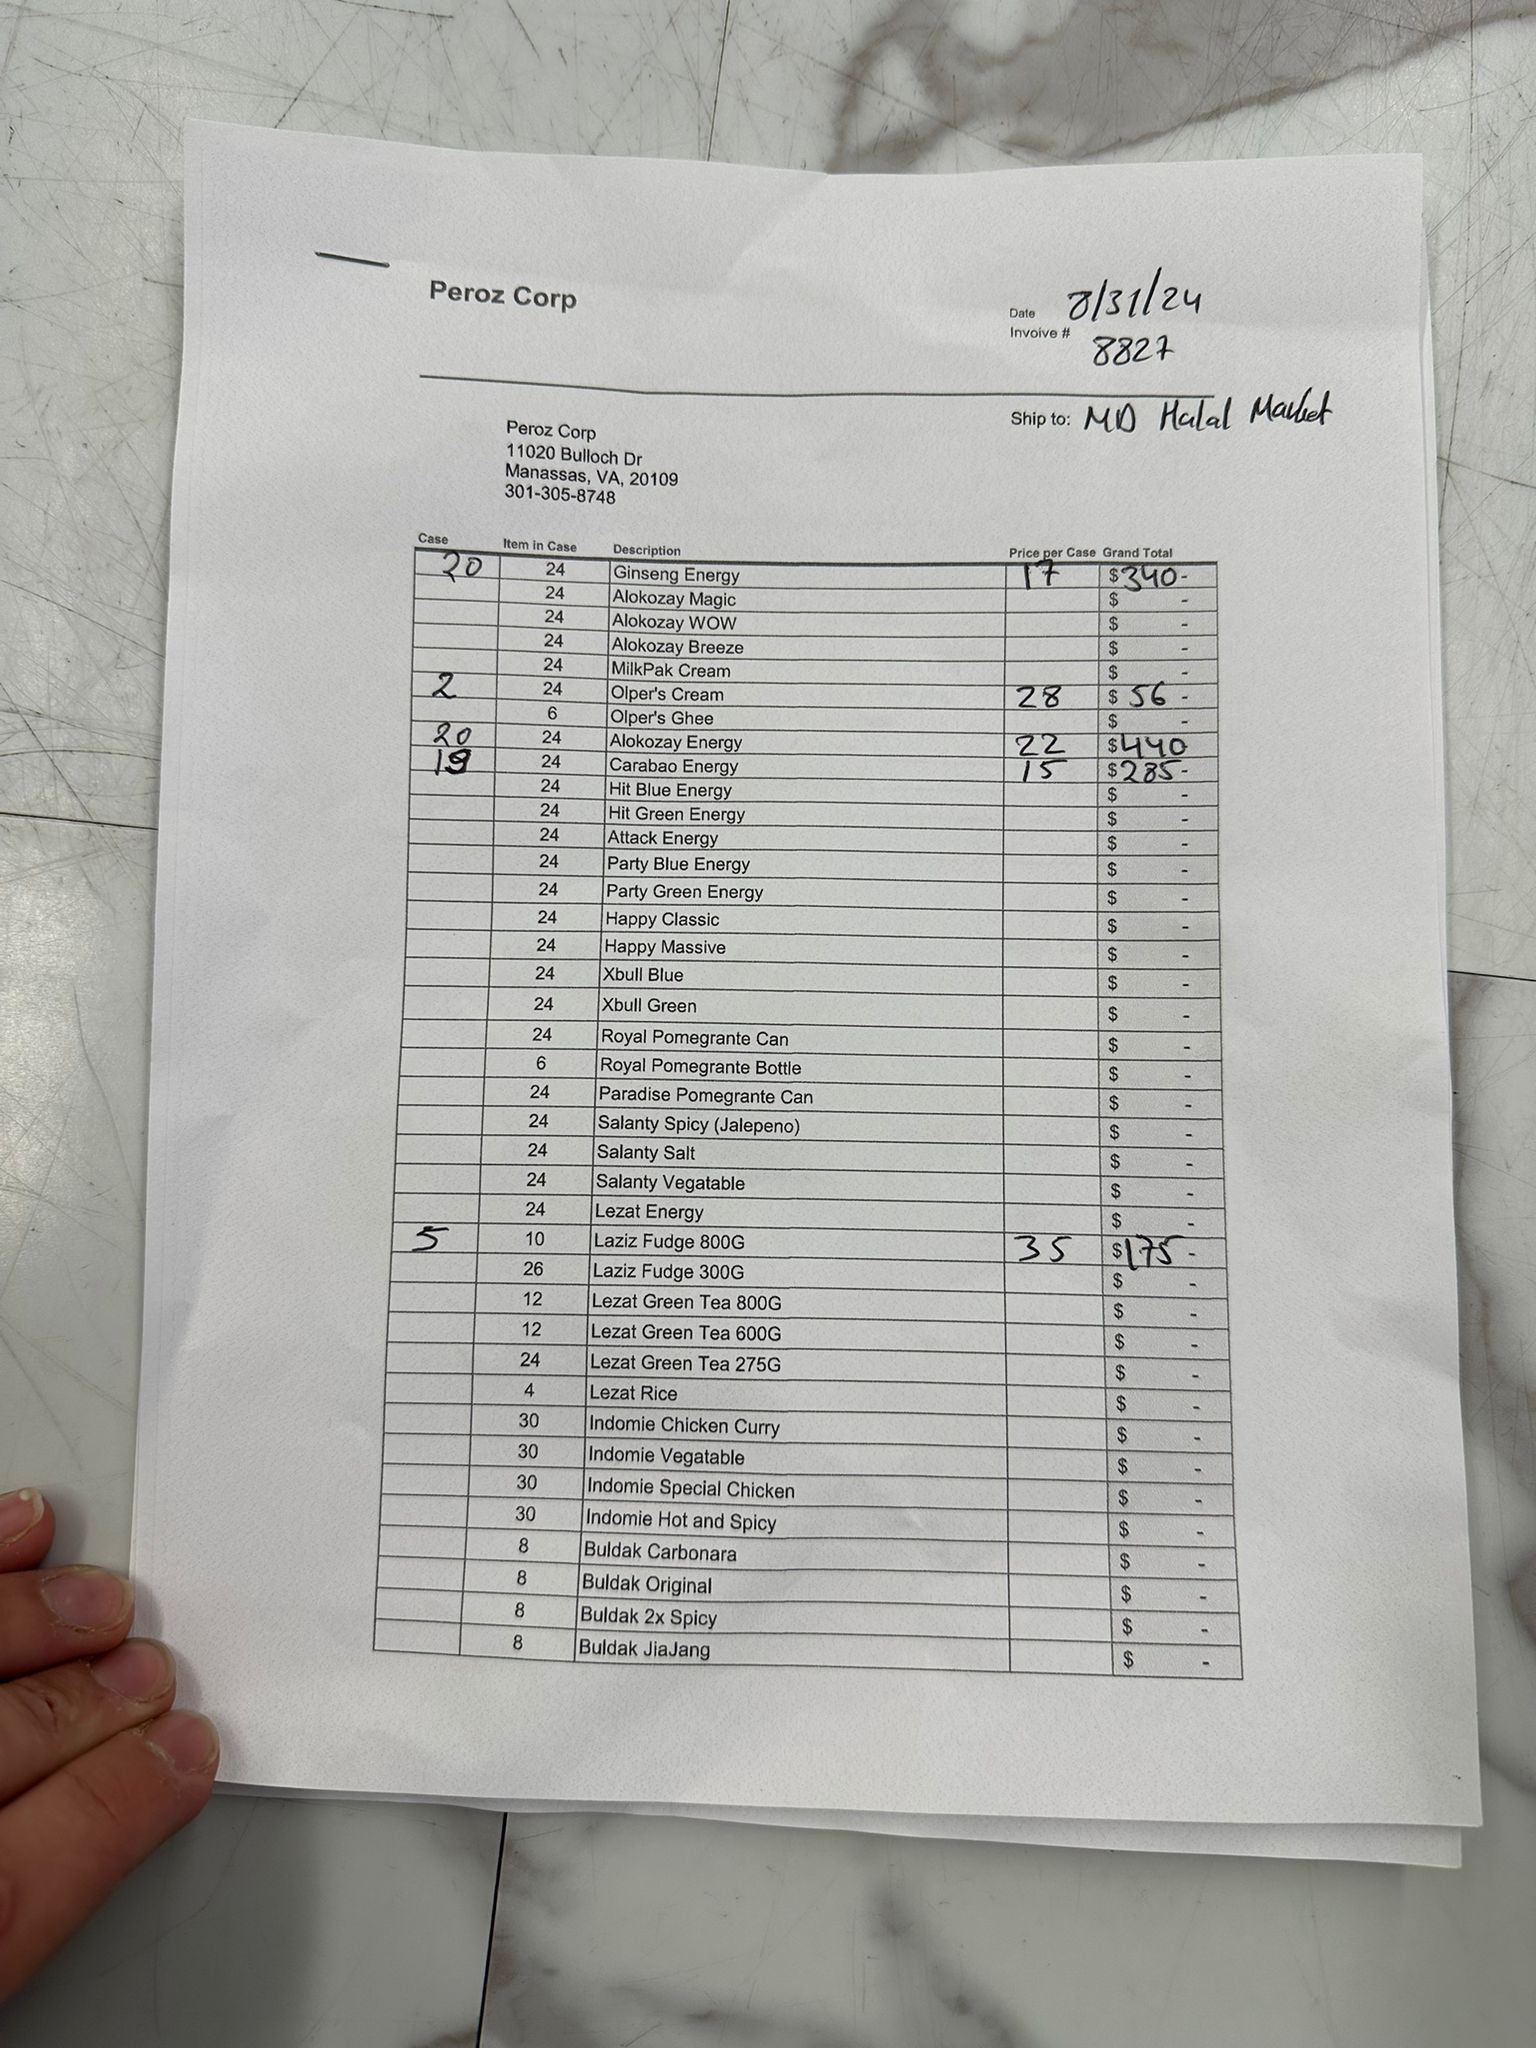 Peroz Corp
Date 8/31/24
Invoive # 8827
Ship to: MD Halal Market
Peroz Corp
11020 Bulloch Dr
Manassas, VA, 20109
301-305-8748
Case Item in Case Description Price per Case Grand Total
20 24 Ginseng Energy 17 $340-
24 Alokozay Magic $ -
24 Alokozay WOW $ -
24 Alokozay Breeze $ -
24 MilkPak Cream $ -
2 24 Olper's Cream 28 $ 56 -
6 Olper's Ghee $ -
20 24 Alokozay Energy 22 $440
19 24 Carabao Energy 15 $285-
24 Hit Blue Energy $ -
24 Hit Green Energy $ -
24 Attack Energy $ -
24 Party Blue Energy $ -
24 Party Green Energy $ -
24 Happy Classic $ -
24 Happy Massive $ -
24 Xbull Blue $ -
24 Xbull Green $ -
24 Royal Pomegrante Can $ -
6 Royal Pomegrante Bottle $ -
24 Paradise Pomegrante Can $ -
24 Salanty Spicy (Jalepeno) $ -
24 Salanty Salt $ -
24 Salanty Vegatable $ -
24 Lezat Energy $ -
5 10 Laziz Fudge 800G 35 $175 -
26 Laziz Fudge 300G $ -
12 Lezat Green Tea 800G $ -
12 Lezat Green Tea 600G $ -
24 Lezat Green Tea 275G $ -
4 Lezat Rice $ -
30 Indomie Chicken Curry $ -
30 Indomie Vegatable $ -
30 Indomie Special Chicken $ -
30 Indomie Hot and Spicy $ -
8 Buldak Carbonara $ -
8 Buldak Original $ -
8 Buldak 2x Spicy $ -
8 Buldak JiaJang $ -